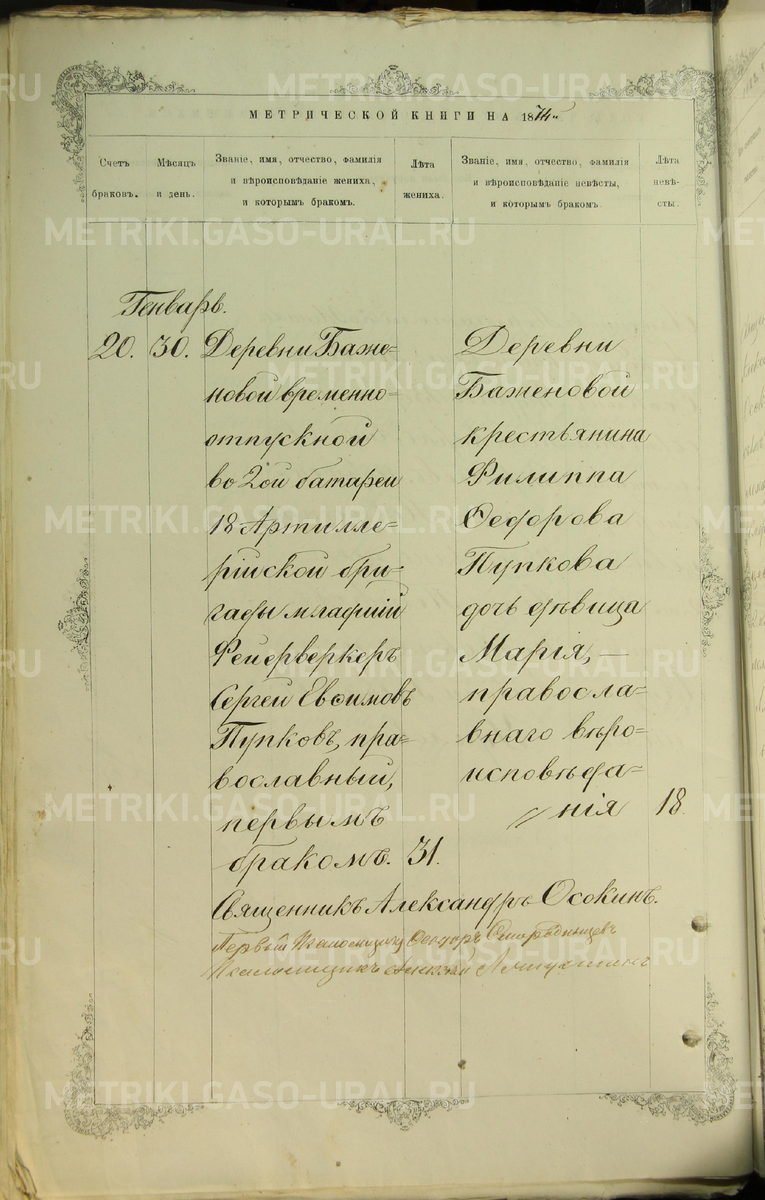 МЕТРИЧЕСКОЙ КНИГИ НА 1874й
Счетъ браковъ.
Мѣсяцъ и день.
Званіе, имя, отчество, фамилія и вѣроисповѣданіе жениха, и которымъ бракомъ.
Лѣта жениха.
Званіе, имя, отчество, фамилія и вѣроисповѣданіе невѣсты, и которымъ бракомъ.
Лѣта невѣсты.
Генварь.
20. 30. Деревни Баже=
новой временно=
отпускной
во 2ой батареи
18 Артилле=
рійской бри=
гады младшій
Фейерверкеръ
Сергей Евѳимовъ
Пупковъ, пра=
вославный,
первымъ
бракомъ. 31.
Деревни
Баженовой
крестьянина
Филиппа
Ѳедорова
Пупкова
дочь дѣвица
Марія, —
правосла=
внаго вѣро=
исповѣда=
нія 18.
Священникъ Александръ Осокинъ.
Первый Псаломщикъ Ѳеодоръ
Псаломщикъ
METRIKI.GASO-URAL.RU